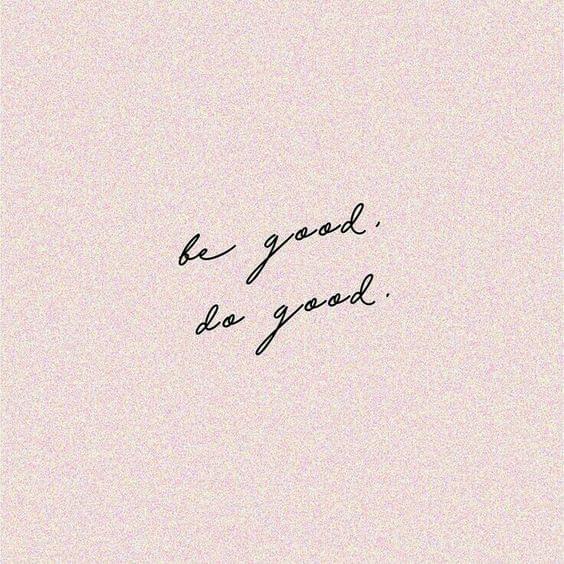 be good.
do good.